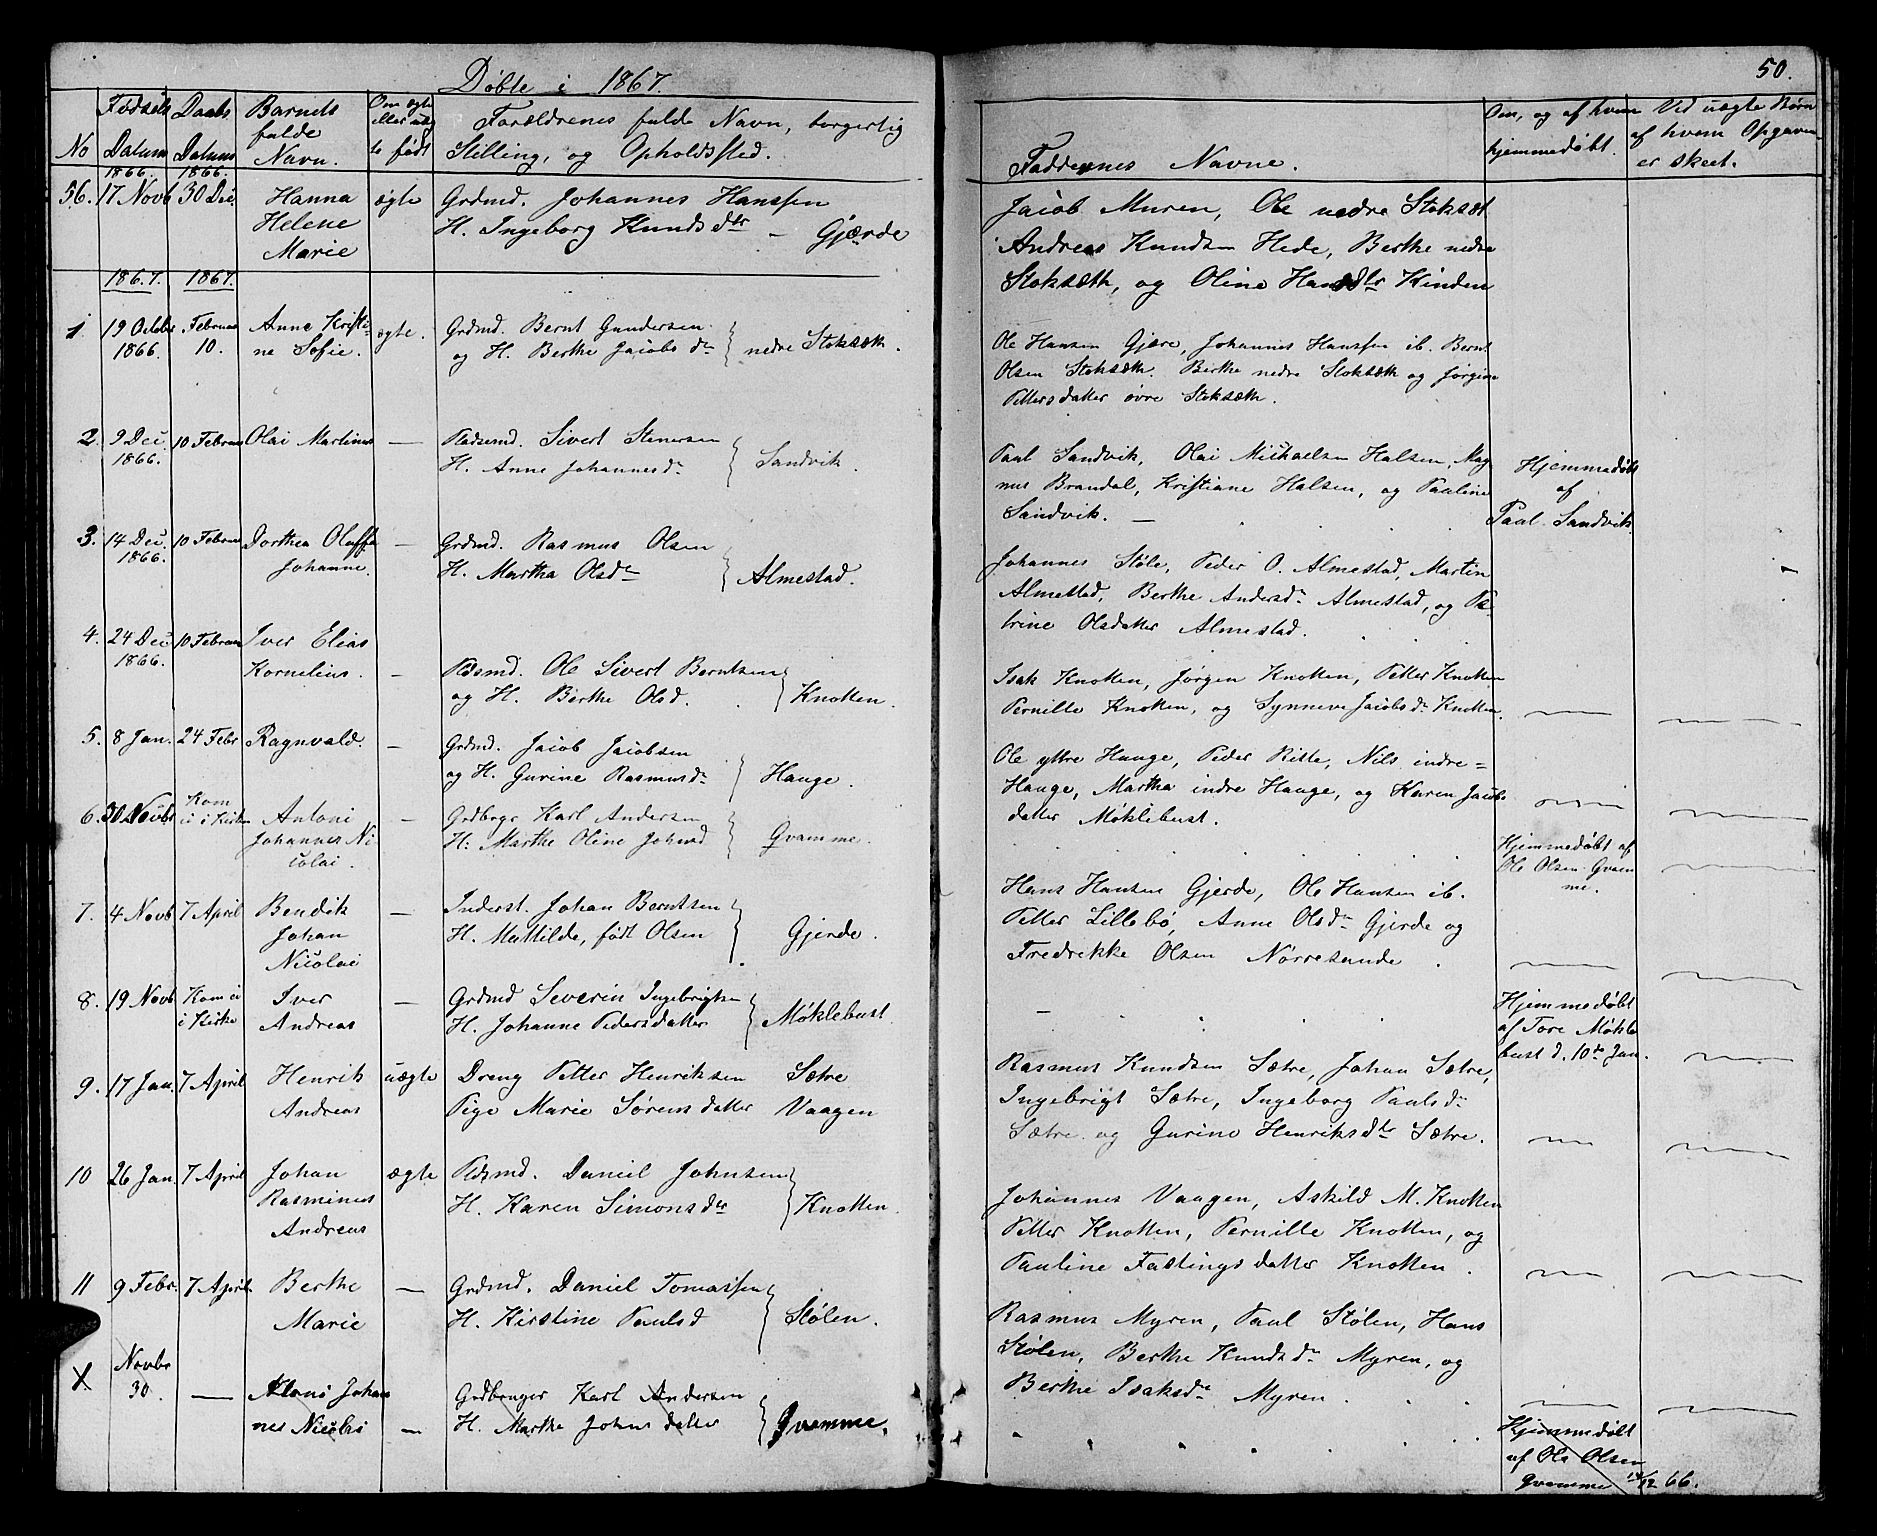 Døbte i 1867.
50.
No
Fødsels Datum
Daabs Datum
Barnets fulde Navn.
Om ægte eller uæg te født
Forældrenes fulde Navn, borgerlig
Stilling, og Opholdssted.
Faddernes Navne.
Om, og af hvem hjemmedøbt.
Ved uægte Børn af hvem Opgaven er skeet.
1866. 1866.
56. 17 Novb 30 Dec. Hanna ægte Grdmd. Johannes Hanssen
Helene H. Ingeborg Knuds dtr - Gjærde
Marie
Jacob Muren, Ole nedre Stoksæt
Andreas Knudsen Hede, Berthe nedre
Stoksæth, og Oline Hansdtr Kinden
1867. 1867.
1. 19 Octobr Februar Anne Kristi- ægte. Grdmd. Bernt Gundersen
1866. 10. ne Sofie. og H. Berthe Jacobs dr nedre Stoksæth.
Ole Hansen Gjære, Johannes Hanssen ib. Bernt
Olsen Stoksæth. Berthe nedre Stoksæth og Jørgine
Pettersdatter øvre Stoksæth.
2. 9 Dec 10 Februar Olai Martinus — Pladsemd. Sivert Stenersen
1866. H. Anne Johannesdr Sandvik.
Paul Sandvik, Olai Mickaelsen Halsen, Mag
nus Brandal, Kristiane Halsen, og Pauline
Sandvik. —
Hjemmedøbt
af
Paul Sandvik
3. 14 Dec. 10 Februar Dorthea Oluffa — Grdmd. Rasmus Olsen
1866. Johanne. H. Martha Olsdr Almestad.
Johannes Støle, Peder O. Almestad, Martin
Almestad, Berthe Andersdr Almestad, og Pe-
trine Olsdatter Almestad.
4. 24 Dec 10 Februar Iver Elias
1866. Kornelius. — Pldsmd. Ole Sivert Berntsen
og H. Berthe Olsd. Knotten.
Isak Knotten, Jørgen Knotten, Petter Knotten
Pernille Knotten, og Synneve Jacobsdr Knotten.
5. 8 Jan. 24 Febr Ragnvald. — Grdmd. Jacob Jacobsen
og H. Gurine Rasmusdr Hauge.
Ole yttre Hauge, Peder Ritte, Nils indre=
Hauge, Martha indre Hauge, og Karen Jacobs
datter Møklebust.
6. 30 Novbr Kom ei i Kirken Antoni — Grdbrgr Karl Andersen
Johannes Ni H. Marthe Oline Johnsd Qvamme.
colai.
Hjemmedøbt af
Ole Olsen Qvam
me.
7. 4 Novb 7 April Bendik — Inderst. Johan Berntsen
Johan H. Mathilde, født Olsen Gjerde.
Nicolai
Hans Hansen Gjerde, Ole Hansen ib.
Petter Lillebø, Anne Olsdr Gjerde og
Fredrikke Olsen Nørresunde.
8. 19 Novb Kom ei Iver — Grdmd Severin Ingebrigtsen
i Kirke Andreas H. Johanne Pedersdatter Møklebust.
Hjemmedøbt
af Tore Møkle
bust d. 10de Jan.
9. 17 Jan. 7 April Henrik uægte Dreng Petter Henriksen Sætre
Andreas Pige Marie Sørens datter Vaagen
Rasmus Knudsen Sætre, Johan Sætre,
Ingebrigt Sætre, Ingeborg Paulsdr
Sætre og Gurine Henriksdtr Sætre.
10 26 Jan. 7 April Johan ægte Pldsmd. Daniel Johnsen
Rasminus H. Karen Simonsdtr Knotten.
Andreas
Johannes Vaagen, Askild M. Knotten
Petter Knotten, Pernille Knotten, og
Pauline Fætings datter Knotten.
11 9 Febr. 7 April. Berthe — Grdmd. Daniel Tomassen
Marie H. Kirstine Paulsd Stølen.
Rasmus Myren, Paul Stølen, Hans
Stølen, Berthe Knudsdr Myren, og
Berthe Isaksdr Myren.
X Novbr
30. — Johan — Grdbruger Karl Andersen
nes Nicolai H. Marthe Johns datter Qvamme.
Hjemmedøbt
af Ole Olsen
Qvamme 14/12 66.